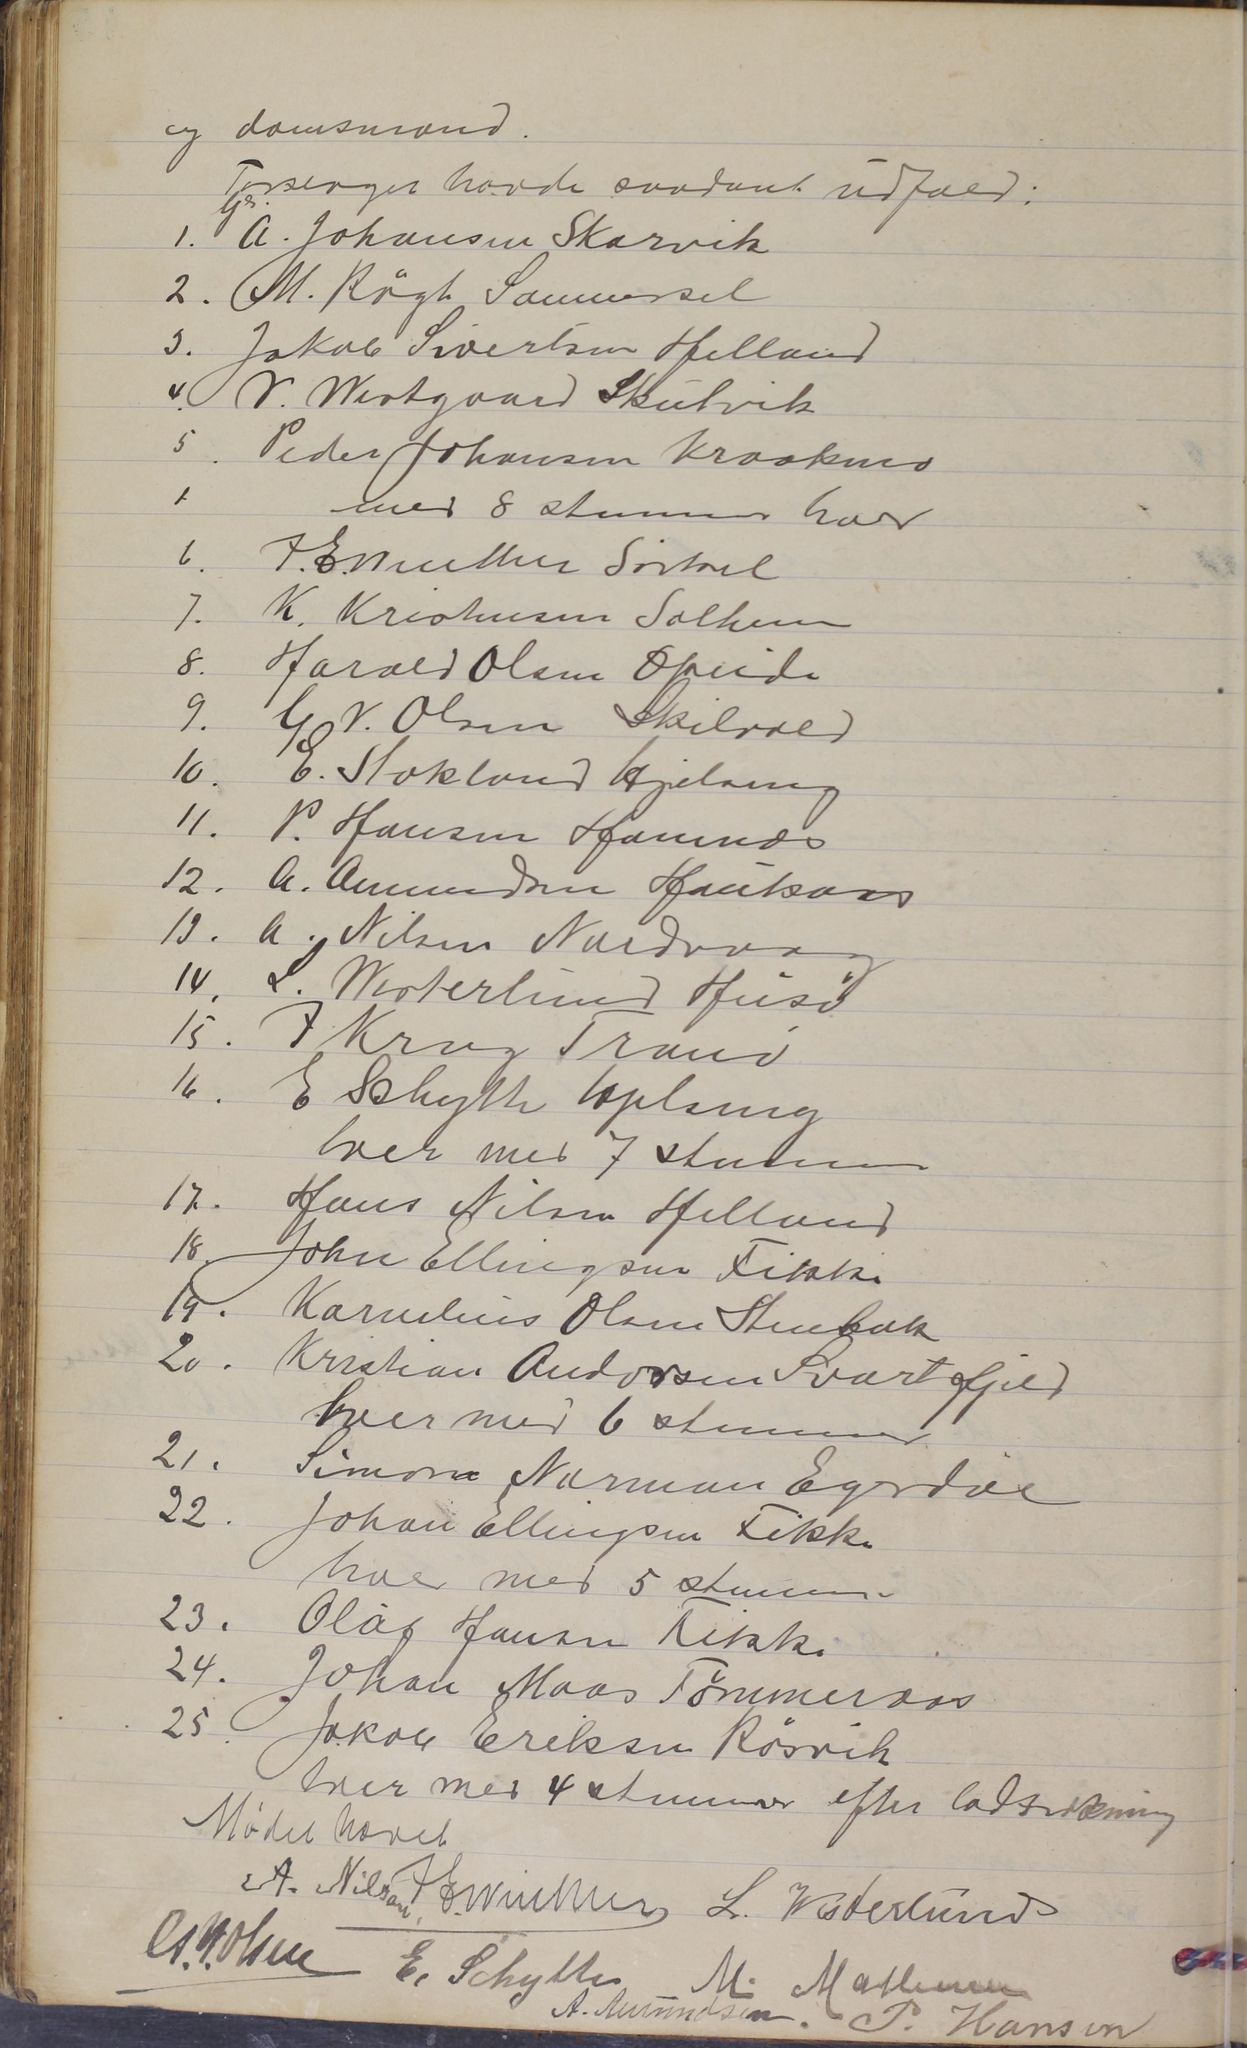 og domsmænd.
Forslaget havde saadant udfald:
1. G. A. Johansen Skarvik
2. M. Rögh Sommersel
3. Jakob Sivertsen Helland
4. V. Westgaard Skutvik
5. Peder Johansen Kraakmo
med 8 stemmer hver
6. F. E. Winther
7. K. Kristensen Solheim
8. Harald Olsen
9. G. V. Olsen Skilvald
10. E. Stokland
11. P. Hansen Hamnæs
12. A. Amundsen Haukaas
13. A. Nilsen Nordvaag
14. L. Westerlund Husö
15. F Krog Tranö
16. E Schytte
hver med 7 stemmer
17. Hans Nilsen Helland
18. John Ellingsen Fikke
19. Kornelius Olsen Stenbak
20. Kristian Andorsen Svartfjeld
hver med 6 stemmer
21. Simon Norman
22. Johan Ellingsen Fikke
hver med 5 stemmer
23. Olaf Hansen Fikke
24. Johan Maas Tömmeraas
25. Jakob Eriksen Rösvik
hver med 4 stemmer efter lodtrækning
Mödet hævet
A. Nilsen, F. E. Winther L. Westerlund
G. V. Olsen E. Schytte M.
A. Amundsen. P. Hansen